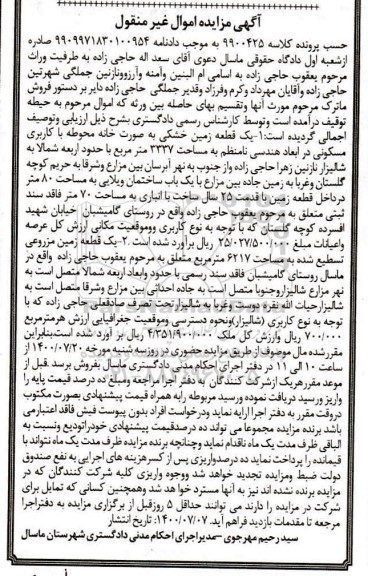 آگهی مزایده اموال غیر منقول
حسب پرونده کلاسه ۹۹۰۰۴۲۵ به موجب دادنامه ۹۹۰۹۹۷۱۸۳۰۱۰۰۹۵۴ صادره
ازشعبه اول دادگاه حقوقی ماسال دعوی آقای سعد اله حاجی زاده به طرفیت وراث
مرحوم یعقوب حاجی زاده به اسامی ام البنین وآمنه وآرزوونازنین جملگی شهرتین
حاجی زاده وآقایان مهرداد وکرم وفرزاد وقدیر جملگی حاجی زاده دایر بر دستور فروش
ماترک مرحوم مورث آنها وتقسیم بهای حاصله بین ورثه که اموال مرحوم به حیطه
توقیف درآمده است وتوسط کارشناس رسمی دادگستری بشرح ذیل ارزیابی وتوصیف
اجمالی گردیده است:۱-یک قطعه زمین خشکی به صورت خانه محوطه با کاربری
مسکونی در ابعاد هندسی نامنظم به مساحت ۳۳۳۷ متر مربع با حدود اربعه شمالا به
شالیزار نازنین زهرا حاجی زاده واز جنوب به نهر آبرسان بین مزارع وشرقا به حریم کوچه
گلستان وغربا به زمین جاده بین مزارع با یک باب ساختمان ویلایی به مساحت ۸۰ متر
درداخل قطعه زمین با قدمت ۲۰ سال ساخت با انباری به مساحت ۷۰ متر فاقد سند
ثبتی متعلق به مرحوم یعقوب حاجی زاده واقع در روستای گامیشبان خیابان شهید
افسرده کوچه گلستان که با توجه به نوع کاربری وموقعیت مکانی ارزش کل عرصه
واعیانات مبلغ ۲۵/۰۲۷/۵۰۰/۰۰۰ ریال برآورد شده است .۲-یک قطعه زمین مزروعی
تسطیع شده به مساحت ۶۲۱۷ مترمربع متعلق به مرحوم یعقوب حاجی زاده واقع در
ماسال روستای گامیشبان فاقد سند رسمی با حدود وابعاد اربعه شمالا متصل است به
نهر مزارع شالیزاروجنوبا متصل است به جاده احداثی بین مزارع وشرقا متصل است به
شالیزارحیات الله نقره دوست وغربا به شالیزار تحت تصرف صادقعلی حاجی زاده که با
توجه به نوع کاربری (شالیزار)ونحوه دسترسی وموقعیت جغرافیایی ارزش هرمترمربع
۷۰۰/۰۰۰ ریال وارزش کل ملک ۴/۳۵۱/۹۰۰/۰۰۰ ریال بر آورد شده است.بنابراین
مقررشده مال موصوف از طریق مزایده حضوری در روزسه شنبه مورخه ۱۴۰۰/۰۷/۲۰ از
ساعت ۱۰ الی ۱۱ در دفتر اجرای احکام مدنی دادگستری ماسال بفروش برسد .قبل از
موعد مقررهریک ازشرکت کنندگان به دفتر اجرا مراجعه ومبلغ ده درصد قیمت پایه را
واریز ورسید دریافت نموده ورسید مربوطه رابه همراه قیمت پیشنهادی بصورت مکتوب
دروقت مقرر به دفتر اجرا ارایه نماید ودرخواست افراد بدون پیوست فیش فاقد اعتبارمی
باشد برنده مزایده مجموعا می تواند ده درصدقیمت پیشنهادی خودراتودیع ونسبت به
الباقی ظرف مدت یک ماه ناقدام نماید وچنانچه برنده مزایده ظرف مدت یک ماه نتواند با
قیمانده را پرداخت نماید ده درصدواریزی پس از کسرهزینه های اجرایی به نفع صندوق
دولت ضبط ومزایده تجدید خواهد شد ووجوه واریزی کلیه شرکت کنندگان که در
مزایده برنده نشده اند نیز به آنها مسترد خواهد شد وهمچنین کسانی که تمایل برای
شرکت در مزایده را دارند می توانند حداقل ۵ روزقبل از برگزاری مزایده به دفتراجرا
مرجعه تا مقدمات بازدید فراهم آید. ۱۴۰۰/۰۷/۰۷: تاریخ انتشار
سید رحیم مهرجوی –مدیراجرای احکام مدنی دادگستری شهرستان ماسال